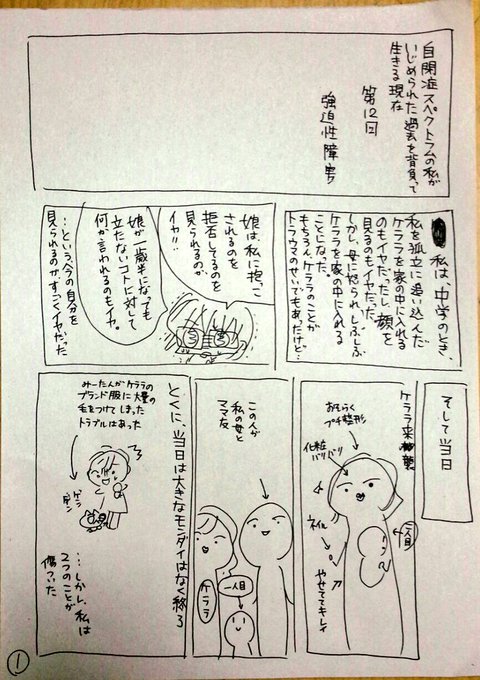 自閉症スペクトラムの私が
いじめられた過去を背負って
生きる現在
第12回
強迫性障害
私は、中学のとき、
私を孤立に追い込んだ
ケララを家の中に入れる
のもイヤだったし、顔を
見るのもイヤだった。
しかし、母に怒られ、しぶしぶ
ケララを家の中に入れる
ことになった。
もちろん、ケララのことが
トラウマのせいでもあったけど…
娘は、私に抱っこ
されるのを
拒否してるのを
見られるのが
イヤ!!
娘が一歳半になっても
立たないコトに対して
何か言われるのもイヤ。
…という、今の自分を
見られるのが、すごくイヤだった
そして当日
ケララ来襲
おそらく
プチ整形
化粧
バリバリ
二人目
ネイル
やせててキレイ
この人が
私の母と
ママ友
一人目
ケララ
とくに、当日は大きなモンダイはなく終る
みーたんが、ケララの
ブランド服に大量の
毛をつけてしまった
トラブルはあった
…しかし、私は
2つのことが
傷ついた
①